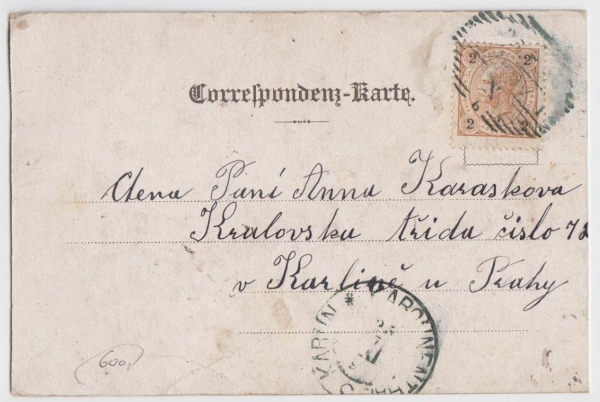 Correspondenz-Karte.
2 2
2 2
Ctena Paní Anna Karaskova
Kralovska třida čislo 72
v Karlině u Prahy
KARLÍN * KAROLINENTHAL
600,